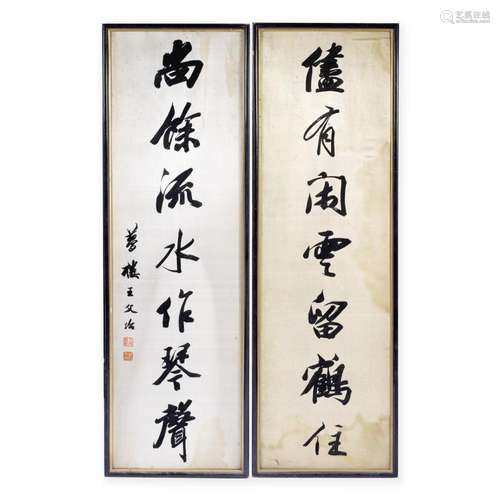 儘有閑雲留鶴住
尚餘流水作琴聲
夢樓王文治
艺狐在线